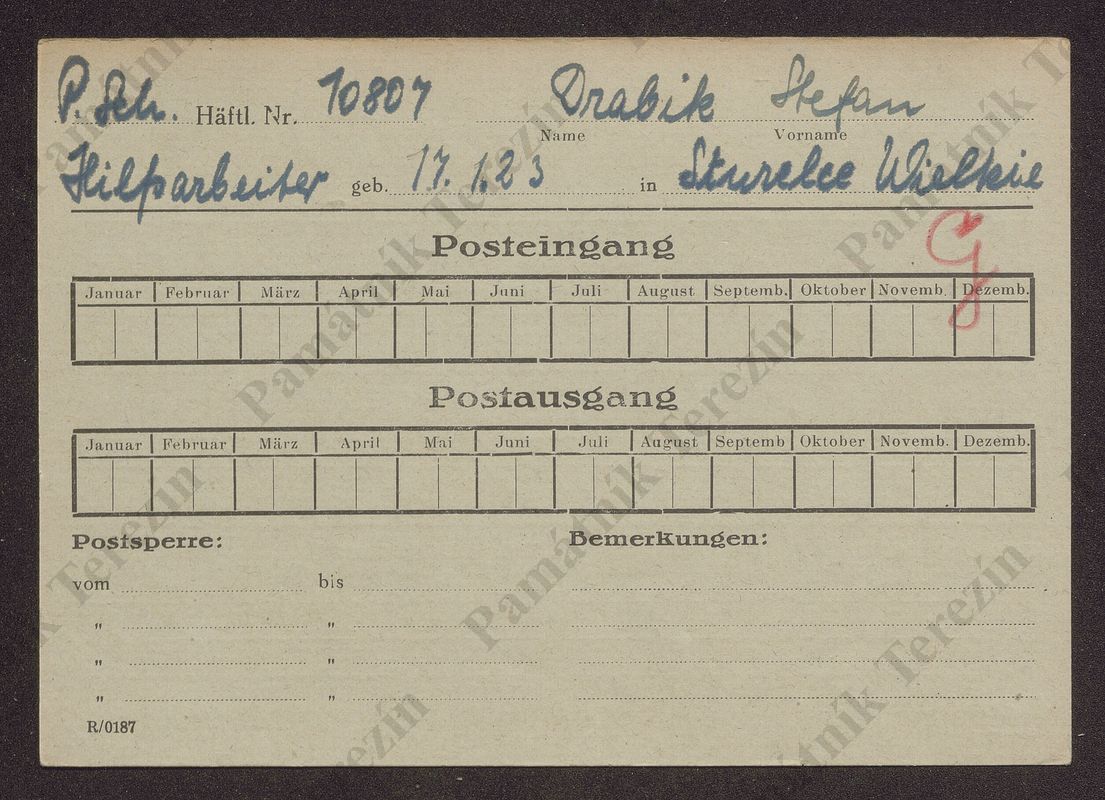 P. Sch. Häftl. Nr. 10807 Drabik Stefan
Name Vorname
Hilfsarbeiter geb. 17.1.23 in Sturelce Wielkie
G
Posteingang
Januar Februar März April Mai Juni Juli August Septemb. Oktober Novemb. Dezemb.
Postausgang
Januar Februar März April Mai Juni Juli August Septemb Oktober Novemb. Dezemb.
Postsperre: Bemerkungen:
vom bis
" "
" "
" "
R/0187
Památník Terezín